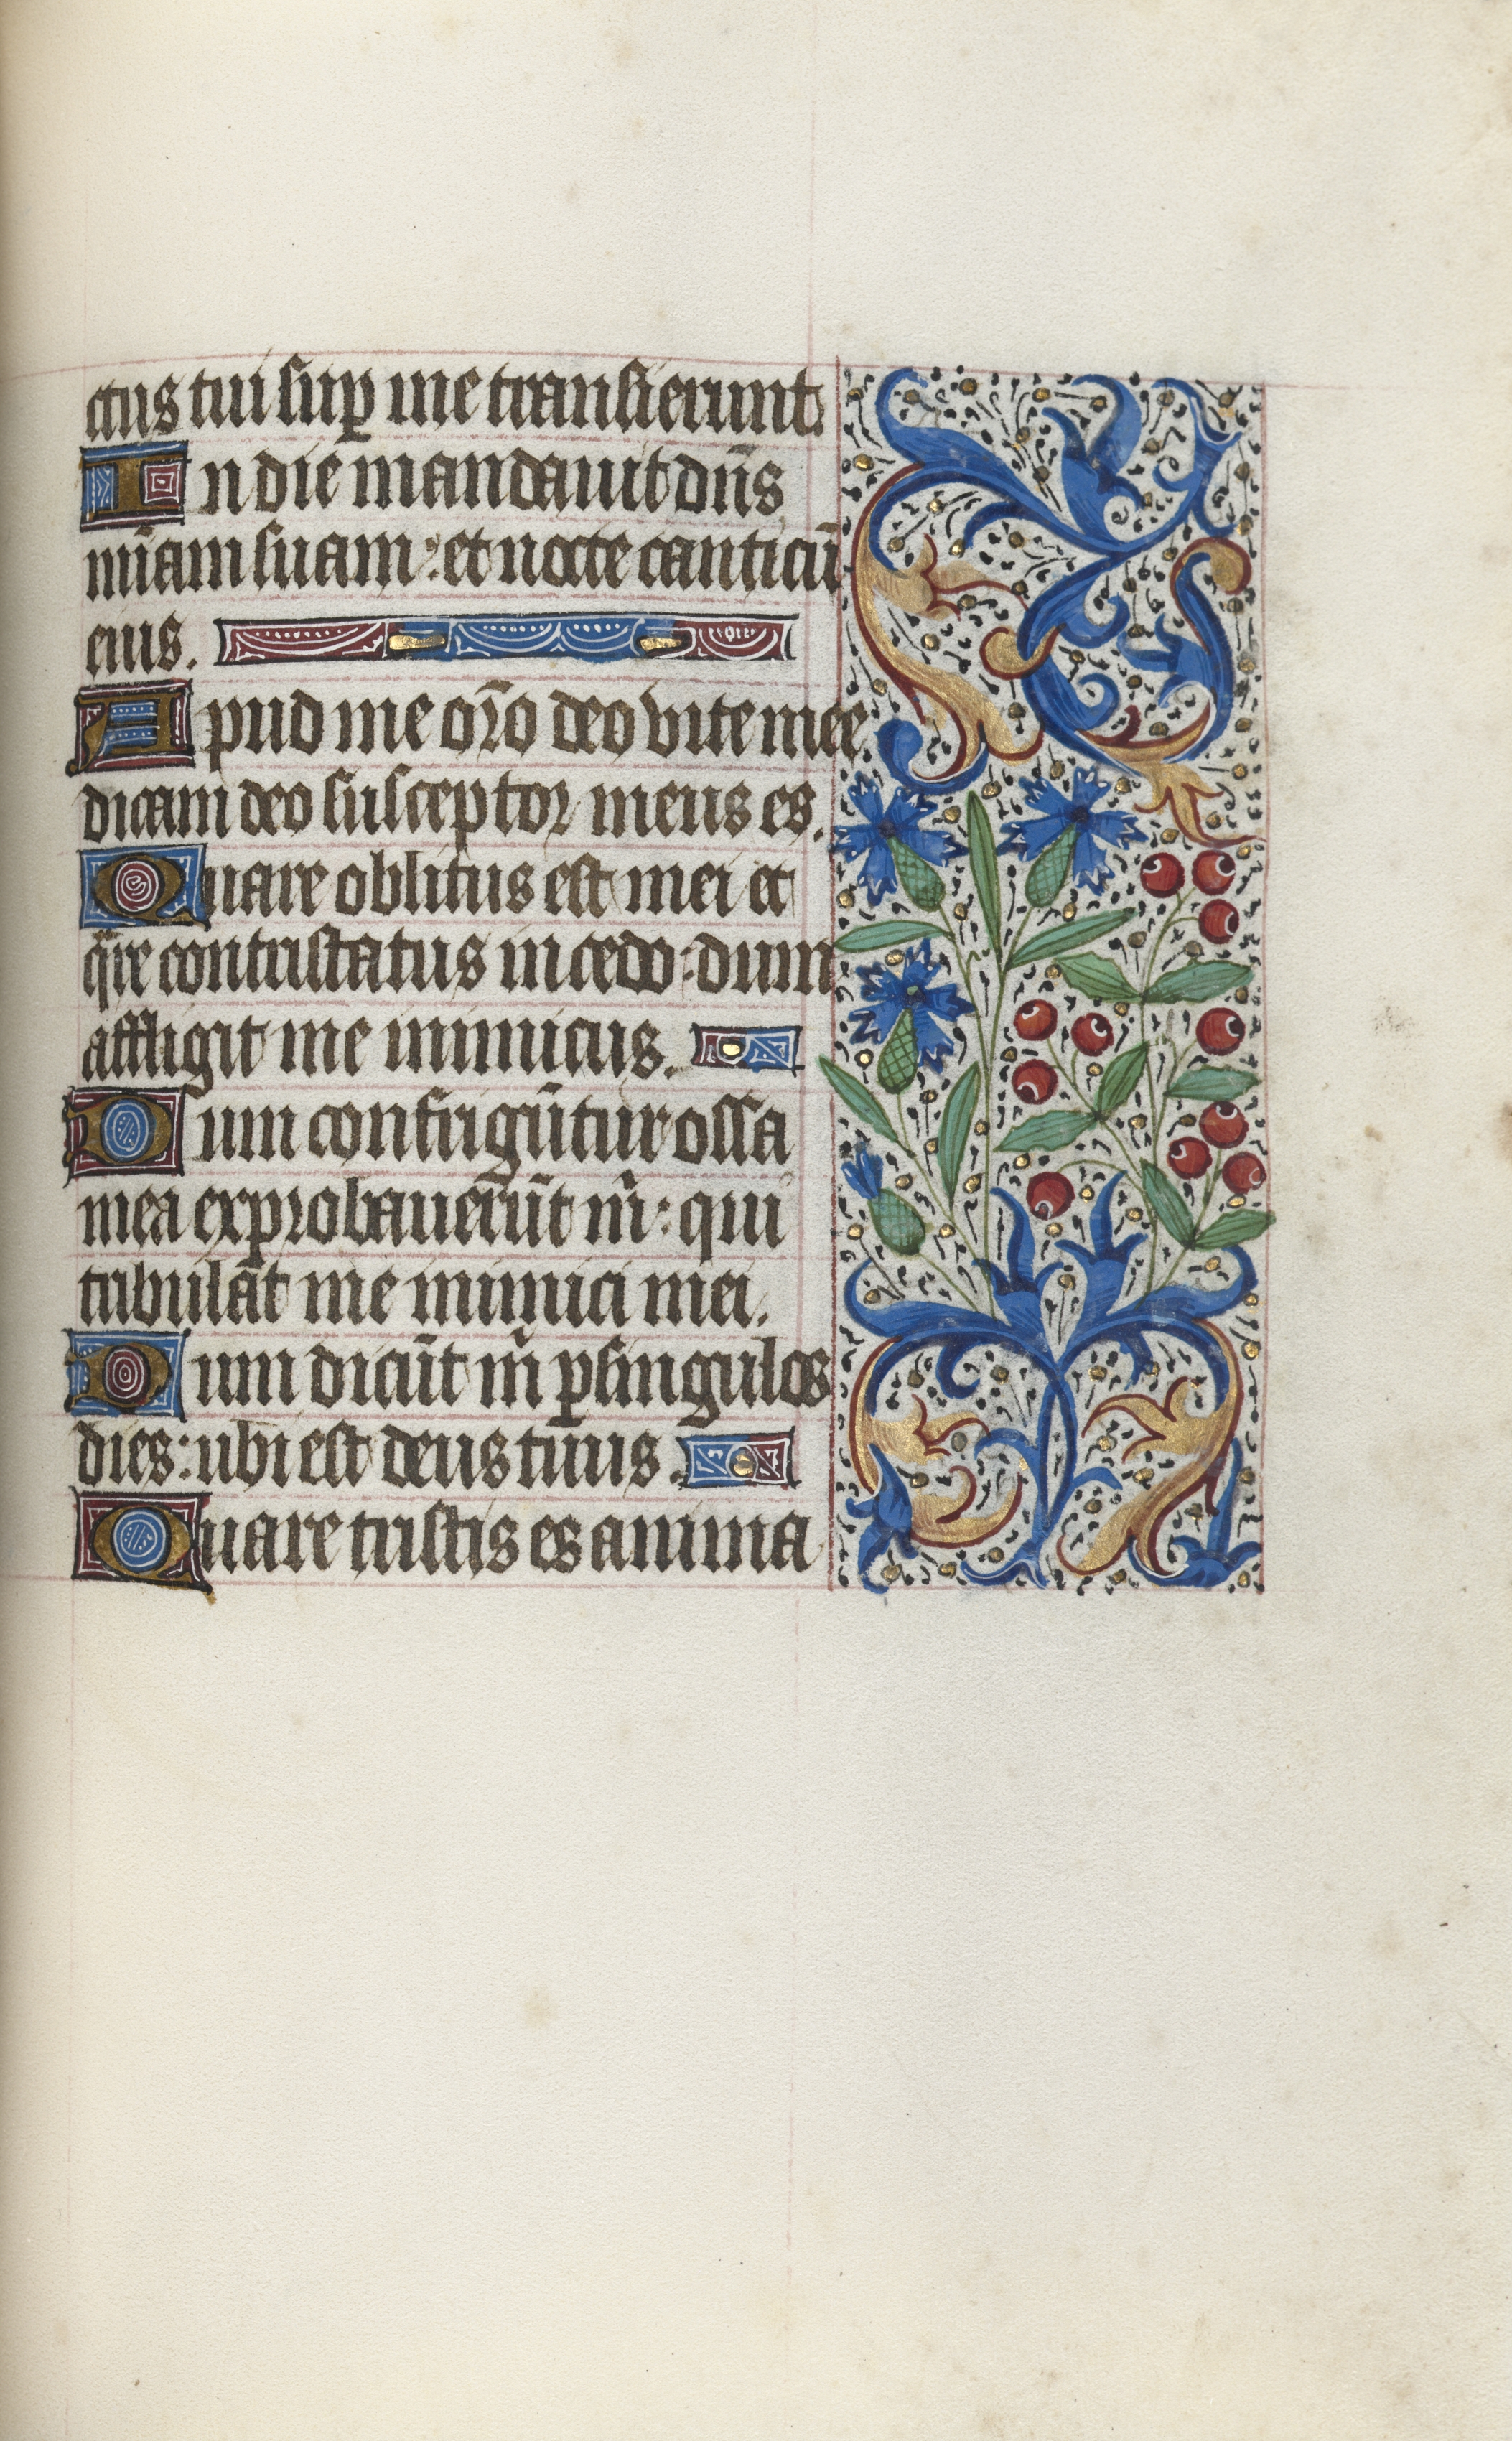 ctus tui sup̱ me transierunt.
In die mandauit dn̄s
mīam suam: et nocte canticū
eius.
Apud me or̄o deo vite mee
dicam deo susceptor meus es.
Quare oblitus est mei et
q̄re contristatus incedo: dum
affligit me inimicus.
Dum confrigūtur ossa
mea exprobauerūt m̄: qui
tribulāt me inimici mei.
Dum dicūt m̄ p̱ singulos
dies: ubi est deus tuus.
Quare tristis es anima